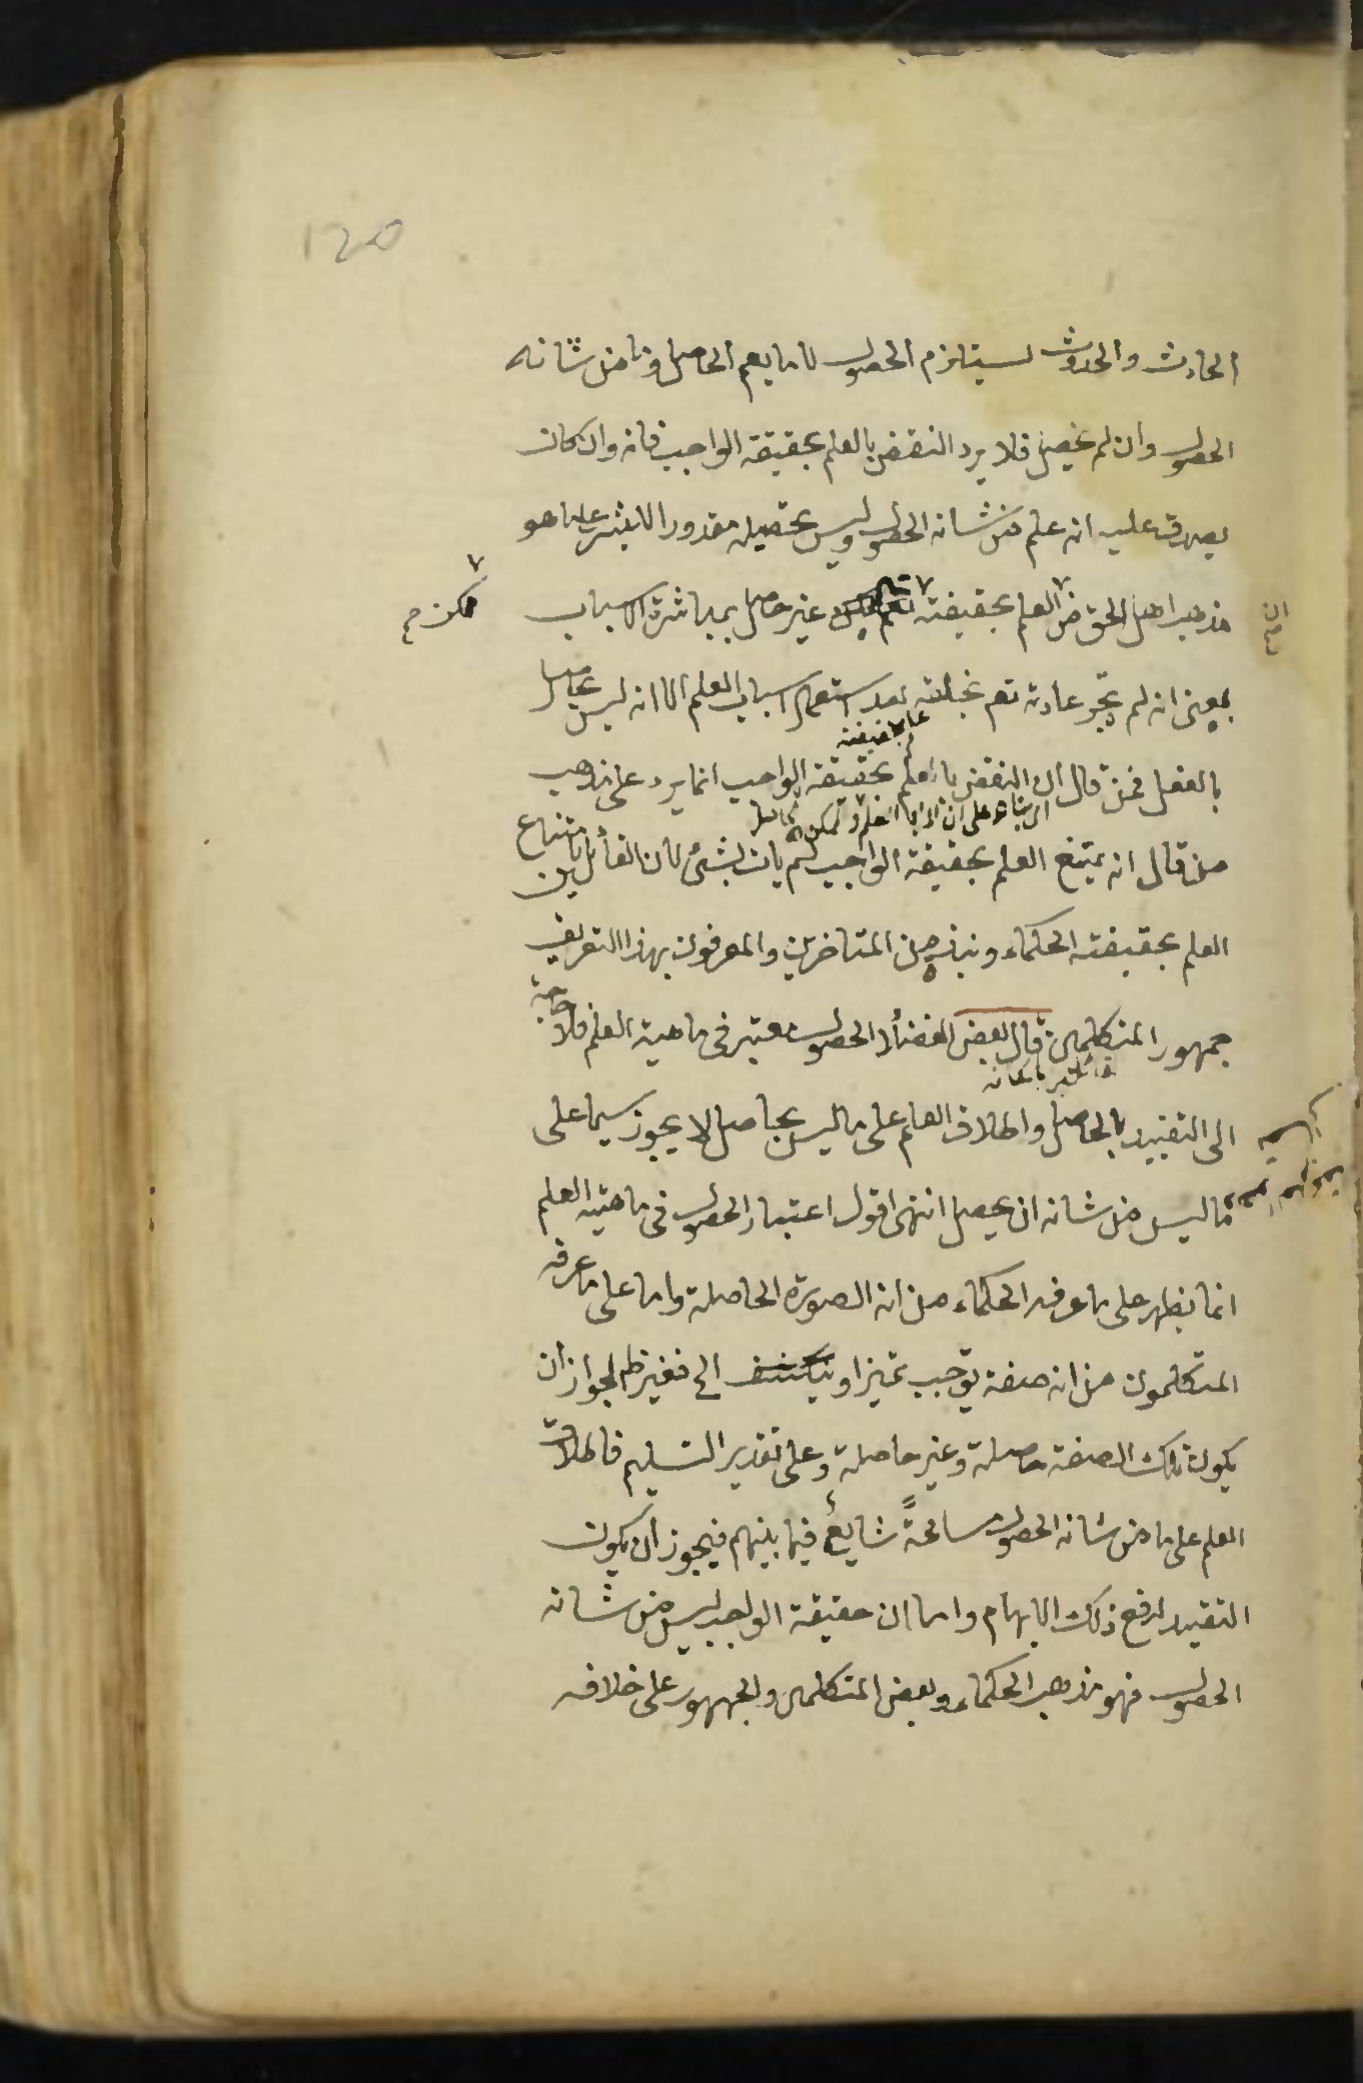 120
الحادث والحدوث يستلزم الحصول لا ما يعم الحاصل وما من شانه
الحصول وان لم يحصل فلا يرد النقض بالعلم بحقيقة الواجب فانه وان كان
يصدق عليه انه علم من شانه الحصول وليس تحصيله مقدورا لا بشر على ما هو
مذهب اهل الحق من العلم بحقيقته تعم غير حاصل بمباشرة الاسباب
ان
ممكن
بمعنى انه لم يجر عادته تعم بخلقه بعد استعمال اسباب العلم الا انه ليس حاصلا
بالفعل فمن قال ان النقض بالعلم بحقيقة الواجب انما يرد على مذهب
من قال انه يمتنع العلم بحقيقة الواجب لم يات بشئ لان القائلين بامتناع
العلم بحقيقته الحكماء ونبذ من المتاخرين والمعرفون بهذا التعريف
جمهور المتكلمين قال بعض الفضلاء الحصول معتبر فى ماهية العلم فلا حاجة
الى التقييد بالحاصل واطلاق العلم على ما ليس بحاصل لا يجوز سيما على
ما ليس من شانه ان يحصل انتهى اقول اعتبار الحصول فى ماهية العلم
انما يظهر على ما عرفه الحكماء من انه الصورة الحاصلة واما على ما عرفه
المتكلمون من انه صفة يوجب تميزا او ينكشف الخ فغير ظم لجواز ان
يكون تلك الصفة حاصلة وغير حاصلة وعلى تقدير التسليم فاطلاق
العلم على ما من شانه الحصول مسامحةً شايع فيما بينهم فيجوز ان يكون
التقييد لدفع ذلك الابهام واما ان حقيقة الواجب ليس من شانه
الحصول فهو مذهب الحكماء وبعض المتكلمين والجمهور على خلافه